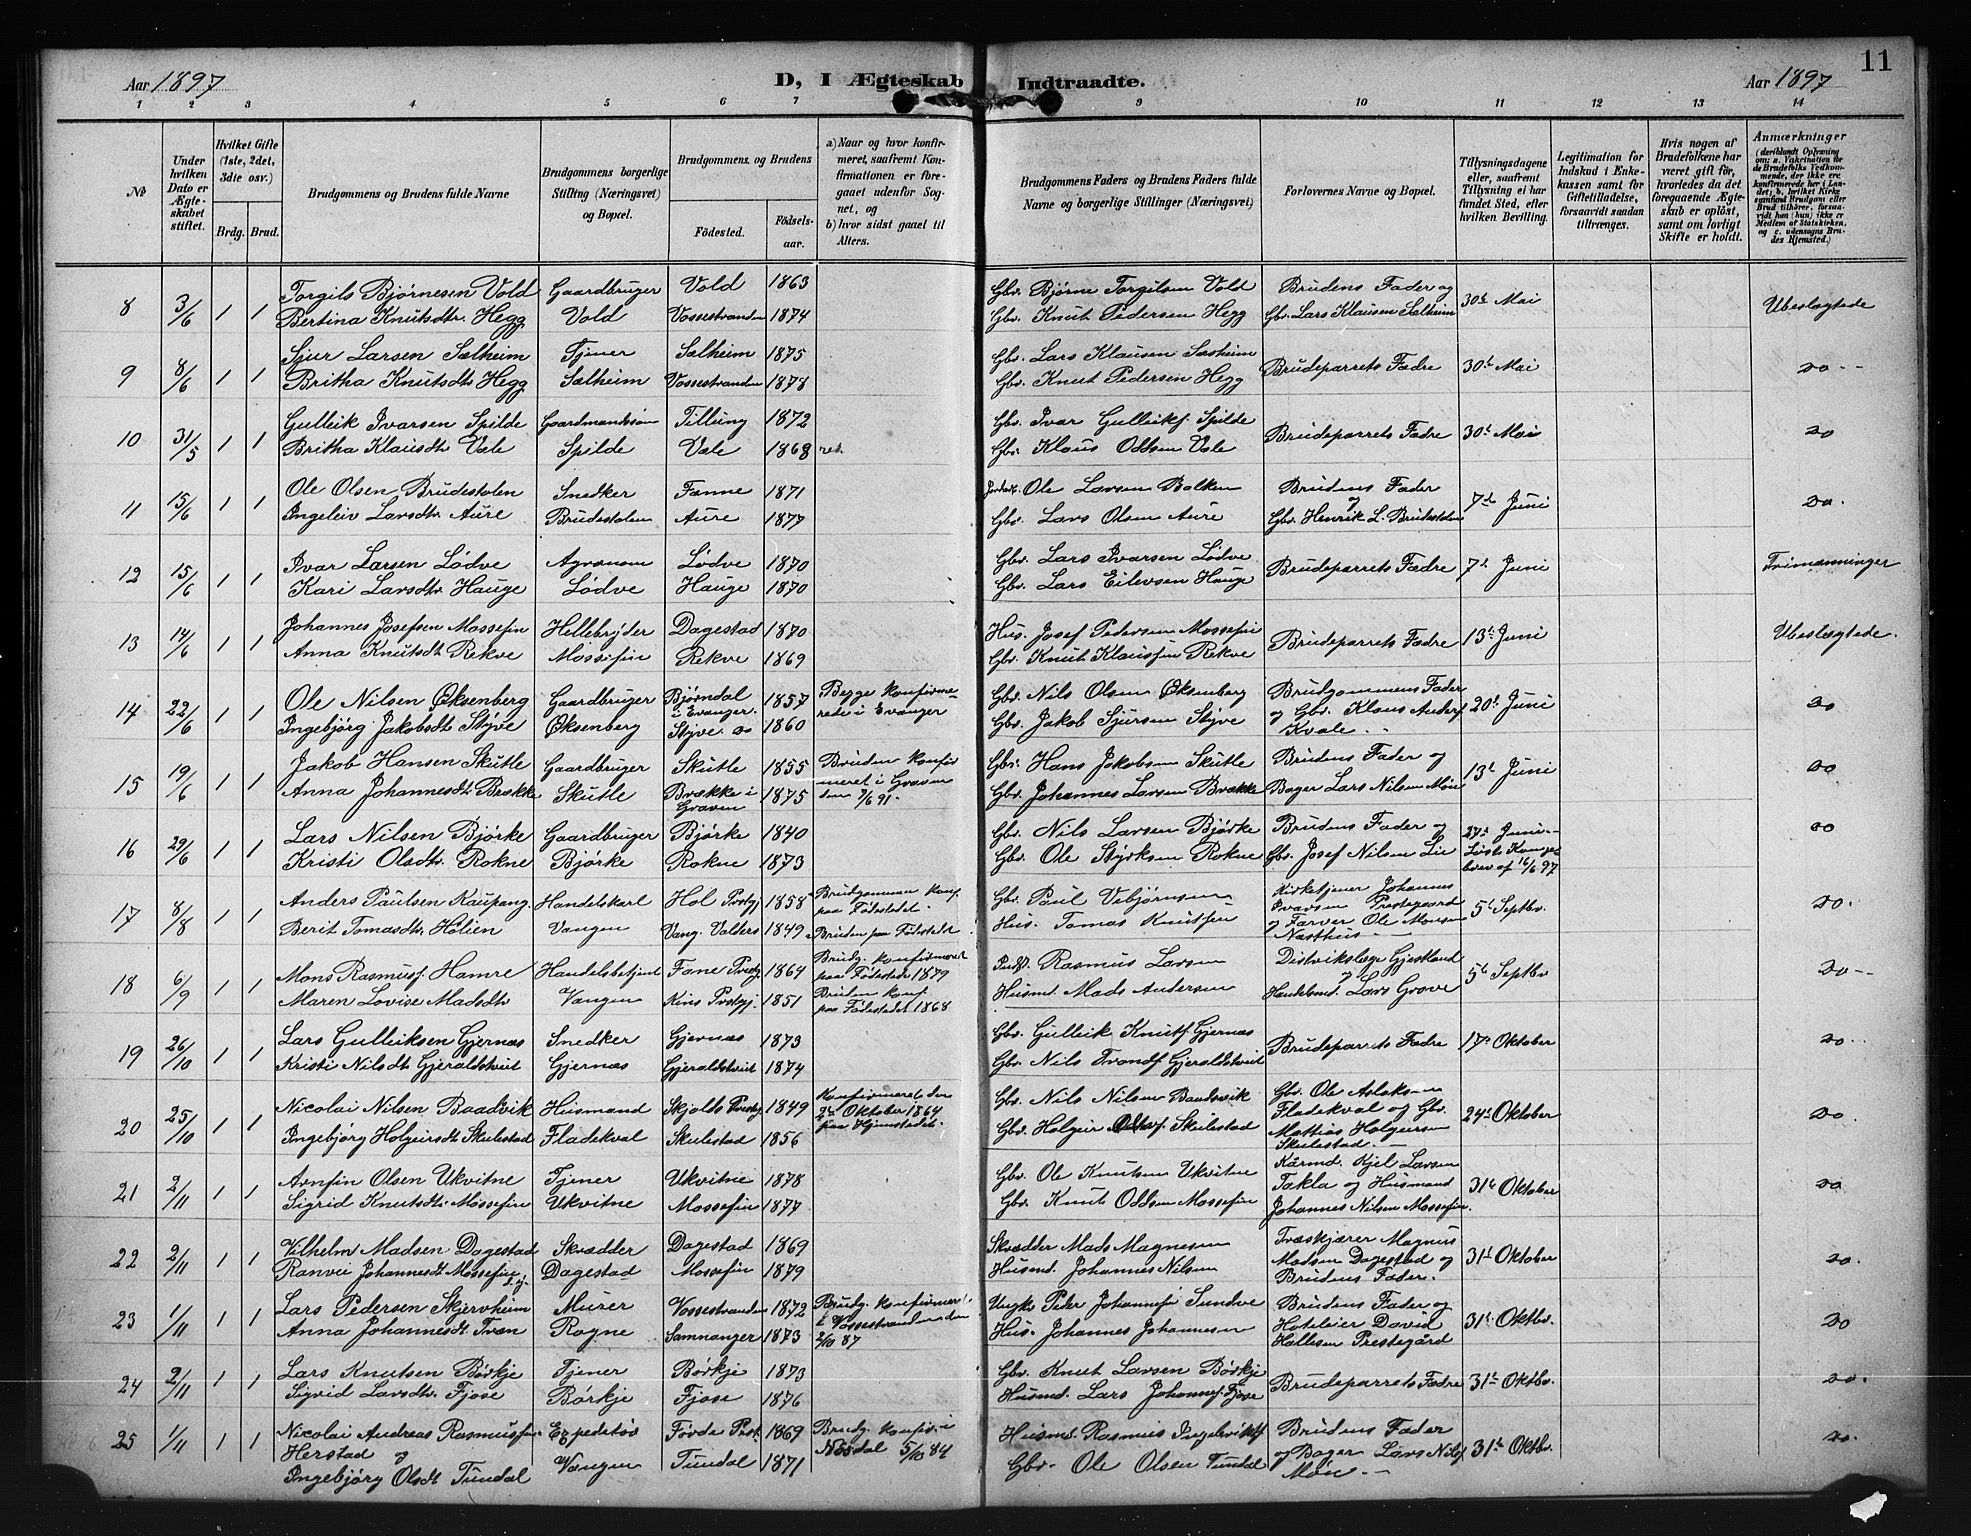 11
Aar 1897
D, I Ægteskab Indtraadte.
Aar 1897
1 2 3 4 5 6 7 9 10 11 12 13 14
No
Under hvilken Dato er Ægteskabet stiftet.
Hvilket Gifte (1ste, 2det, 3die osv.)
Brdg. Brud.
Brudgommens og Brudens fulde Navne
Brudgommens borgerlige Stilling (Næringsvei) og Bopæl.
Brudgommens og Brudens
Fødested. Fødselsaar.
a) Naar og hvor konfirmeret, saafremt Konfirmationen er foregaaet udenfor Sognet, og
b) hvor sidst gaaet til Alters.
Brudgommens Faders og Brudens Faders fulde Navne og borgerlige Stillinger (Næringsvei)
Forlovernes Navne og Bopæl.
Tillysningsdagene eller, saafremt Tillysning ei har fundet Sted, efter hvilken Bevilling.
Legitimation for Indskud i Enkekassen samt for Giftetilladelse, forsaavidt saadan tiltrænges.
Hvis nogen af Brudefolkene har været gift før, hvorledes da det foregaaende Ægteskab er opløst, samt om lovligt Skifte er holdt.
Anmærkninger (deriblandt Oplysning om: a. Vakcination for de Brudefolks Vedkommende, der ikke ere konfirmerede her i Landet; b, hvilket Kirkesamfund Brudgom eller Brud tilhører, forsaavidt han (hun) ikke er Medlem af Statskirken, og c. udensogns Brudes Hjemsted.)
8 3/6 1 1 Torgils Bjørnesen Vold Gaardbruger Vold 1863 Gbr. Bjørne Torgilsen Vold Brudens Fader og 30te Mai Ubeslægtede
Bertina Knutsdtr. Hegg Vold Vossestranden 1874 Gbr. Knut Pedersen Hegg Gbr. Lars Klausen Sælheim
9 8/6 1 1 Sjur Larsen Sælheim Tjener Sælheim 1875 Gbr. Lars Klausen Sælheim Brudeparrets Fædre 30te Mai do
Britha Knutsdtr Hegg Sælheim Vossestranden 1878 Gbr. Knut Pedersen Hegg
10 31/5 1 1 Gulleik Ivarsen Spilde Gaardmandssøn Tillung 1872 Gbr. Ivar Gulleiks. Spilde Brudeparrets Fædre 30te Mai do
Britha Klausdtr Væle Spilde Væle 1868 Gbr. Klaus Oddsen Væle
11 15/6 1 1 Ole Olsen Brudestolen Snedker Fenne 1871 Ole Larsen Balken Brudens Fader og 7de Juni do
Ingeleiv Larsdtr Aure Brudestolen Aure 1877 Gbr. Lars Olsen Aure Gbr. Henrik L. Brudestolen
12 15/6 1 1 Ivar Larsen Lødve Agronom Lødve 1870 Gbr. Lars Ivarsen Lødve Brudeparrets Fædre 7de Juni Trimænninger
Kari Larsdtr Hauge Lødve Hauge 1870 Gbr. Lars Eilevsen Hauge
13 14/6 1 1 Johannes Josefsen Mossefin Hellebryder Dagestad 1870 Hus. Josef Pedersen Mossefin Brudeparrets Fædre 13de Juni Ubeslægtede.
Anna Knutsdt Rekve Mossefin Rekve 1869 Gbr. Knut Klaussen Rekve
14 22/6 1 1 Ole Nilsen Øksenberg Gaardbruger Bjørndal i Evanger. 1857 Begge konfirmerede i Evanger Gbr. Nils Olsen Øksenberg Brudgommens Fader 20de Juni do
Ingebjørg Jakobsdt Styve Øksenberg Styve. do 1860 Gbr. Jakob Sjursen Styve og Gbr. Klaus Anders. Kvale
15 19/6 1 1 Jakob Hansen Skutle Gaardbruger Skutle 1855 Bruden konfirmeret i Graven den 7/6 91. Gbr. Hans Jakobsen Skutle Brudens Fader og 13de Juni do
Anna Johannesdt Brække Skutle Brække i Graven 1875 Gbr. Johannes Larsen Brække Bager Lars Nilsen Møn
16 29/6 1 1 Lars Nilsen Bjørke Gaardbruger Bjørke 1840 Gbr. Nils Larsen Bjørke Brudens Fader og 27de Juni. do
Kristi Olsdtr. Rokne Bjørke Rokne 1873 Gbr. Ole Styrksen Rokne Gbr. Josef Nilsen Lie Løst Kongebrev af 16/6 97
17 8/8 1 1 Anders Paulsen Kaupang. Handelskarl Hol Prstgj 1858 Brudgommen konf. paa Fødestedet. Gbr. Paul Vebjørnsen Kirketjener Johannes Ivarsen Prestegaard 5te Septbr. do.
Berit Tomasdtr Hølien Vangen Vang. Valders 1849 Bruden paa Fødestedet Hus. Tomas Knutsen og Farver Ole Monsen Næsthus
18 6/9 1 1 Mons Rasmus. Hamre Handelsbetjent Fane Prstgj 1864 Brudg. konfirmeret paa Fødestedet 1879 Rasmus Larsen Distriktslæge Gjestland og 5te Septbr do
Maren Lovise Madsdtr Vangen Kins Prstgj. 1851 Bruden konf. paa Fødestedet 1868 Husmd. Mads Andersen Handelsmd. Lars Grove
19 26/10 1 1 Lars Gulleiksen Gjernæs Snedker Gjernæs 1873 Gbr. Gulleik Knuts. Gjernæs Brudeparrets Fædre 17de Oktober do
Kristi Nilsdt Gjeraldstveit Gjernæs Gjeraldstveit 1874 Gbr. Nils Tronds. Gjeraldstveit
20 25/10 1 1 Nicolai Nilsen Baadsvik Husmand Skjolds Prstgj 1849 Konfirmeret den 2den Oktober 1864 paa Hjemstedet. Gbr. Nils Nilsen Baadsvik Gbr. Ole Aslaksen Fladekval og Gbr. 24de Oktober do.
Ingebjørg Holgeirsdt Skulestad Fladekval Skulestad 1856 Gbr. Holgeir Skulestad Mattias Holgeirsen Skulestad.
21 2/11 1 1 Arnfin Olsen Ukvitne Tjener Ukvitne 1878 Gbr. Ole Knutsen Ukvitne Kårmd. Kjel Larsen Tøkla og Husmand 31te Oktober do
Sigrid Knutsdt. Mossefin Ukvitne Mossefin 1877 Gbr. Knut Oddsen Mossefin Johannes Nilsen Mossefin.
22 2/11 1 1 Vilhelm Madsen Dagestad Skrædder Dagestad 1869 Skrædder Mads Magnesen Træskjærer Magnus Madsen Dagestad og 31te Oktober do.
Ranvei Johannesdt Mossefin Dagestad Mossefin 1879 Husmd. Johannes Nilsen Brudens Fader.
23 1/11 1 1 Lars Pedersen Skjervheim Murer Vossestranden 1872 Brudg. konfirmeret i Vossestranden den 2/10 87 Ungk. Peder Johannes. Sundve Brudens Fader og 31te Oktbr. do
Anna Johannesdt. Tran Rogne Samnanger 1873 Hus. Johannes Johannesen Hoteleier David Hallesen Prestegård
24 2/11 1 1 Lars Knutsen Børkje Tjener Børkje 1873 Gbr. Knut Larsen Børkje Brudeparrets Fædre 31te Oktbr. do.
Sigrid Larsdtr. Fjose Børkje Fjose 1876 Husmd. Lars Johannes. Fjose
25 1/11 1 1 Nicolai Andreas Rasmussen Herstad og Expeditør Førde Prst. 1869 Brudg. konfir. i 5/10 84 Husmd. Rasmus Brudens Fader 31te Oktbr. do.
Ingebjørg Olsdt Tundal Vangen Tundal 1871 Gbr. Ole Olsen Tundal og Bager Lars Nils. Møn